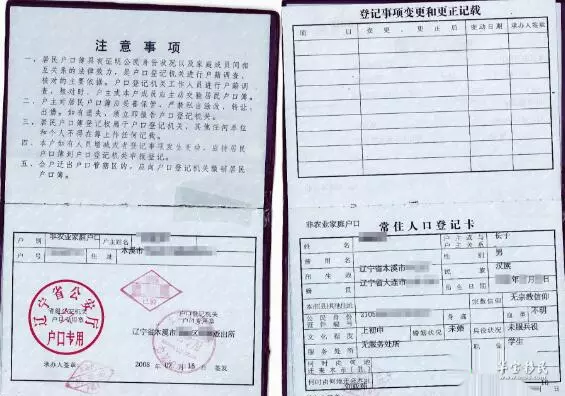 注意事项
一、居民户口簿具有证明公民身份状况以及家庭成员间相
互关系的法律效力，是户口登记机关进行户籍调查、
核对的主要依据。户口登记机关工作人员进行户籍调
查、核对时，户主或本户成员应主动交验居民户口簿。
二、户主对居民户口簿应妥善保管，严禁私自涂改、转让、
出借。如有遗失，须立即报告户口登记机关。
三、居民户口簿登记权属于户口登记机关，其他任何单位
和个人不得在簿上作任何记载。
四、本户如有人员增减或者登记事项发生变动，应持居民
户口簿到户口登记机关申报登记。
五、全户迁出户口管辖区的，应向户口登记机关缴销居民
户口簿。
户别
非农业家庭户口
户主姓名
户号
住址
本溪市
辽宁省公安厅
户口专用
省级公安机关
户口专用章
户口登记机关
户口专用章
辽宁省本溪市
派出所
承办人签章：
2008 年
月
15 日
签发
登记事项变更和更正记载
项目
变更、更正后
变动日期
承办人签章
非农业家庭户口
常住人口登记卡
姓名
户主或与
户主关系
长子
曾用名
性别
男
出生地
辽宁省本溪市
民族
汉族
籍贯
辽宁省大连市
出生日期
年
月
日
本市(县)其他住址
宗教信仰
无宗教信仰
公民身份
证件编号
2105
身高
血型
不明
文化程度
上初中
婚姻状况
未婚
兵役状况
未服兵役
服务处所
无服务处所
职业
学生
何时由何地
迁来本市(县)
何时由何地迁来本址